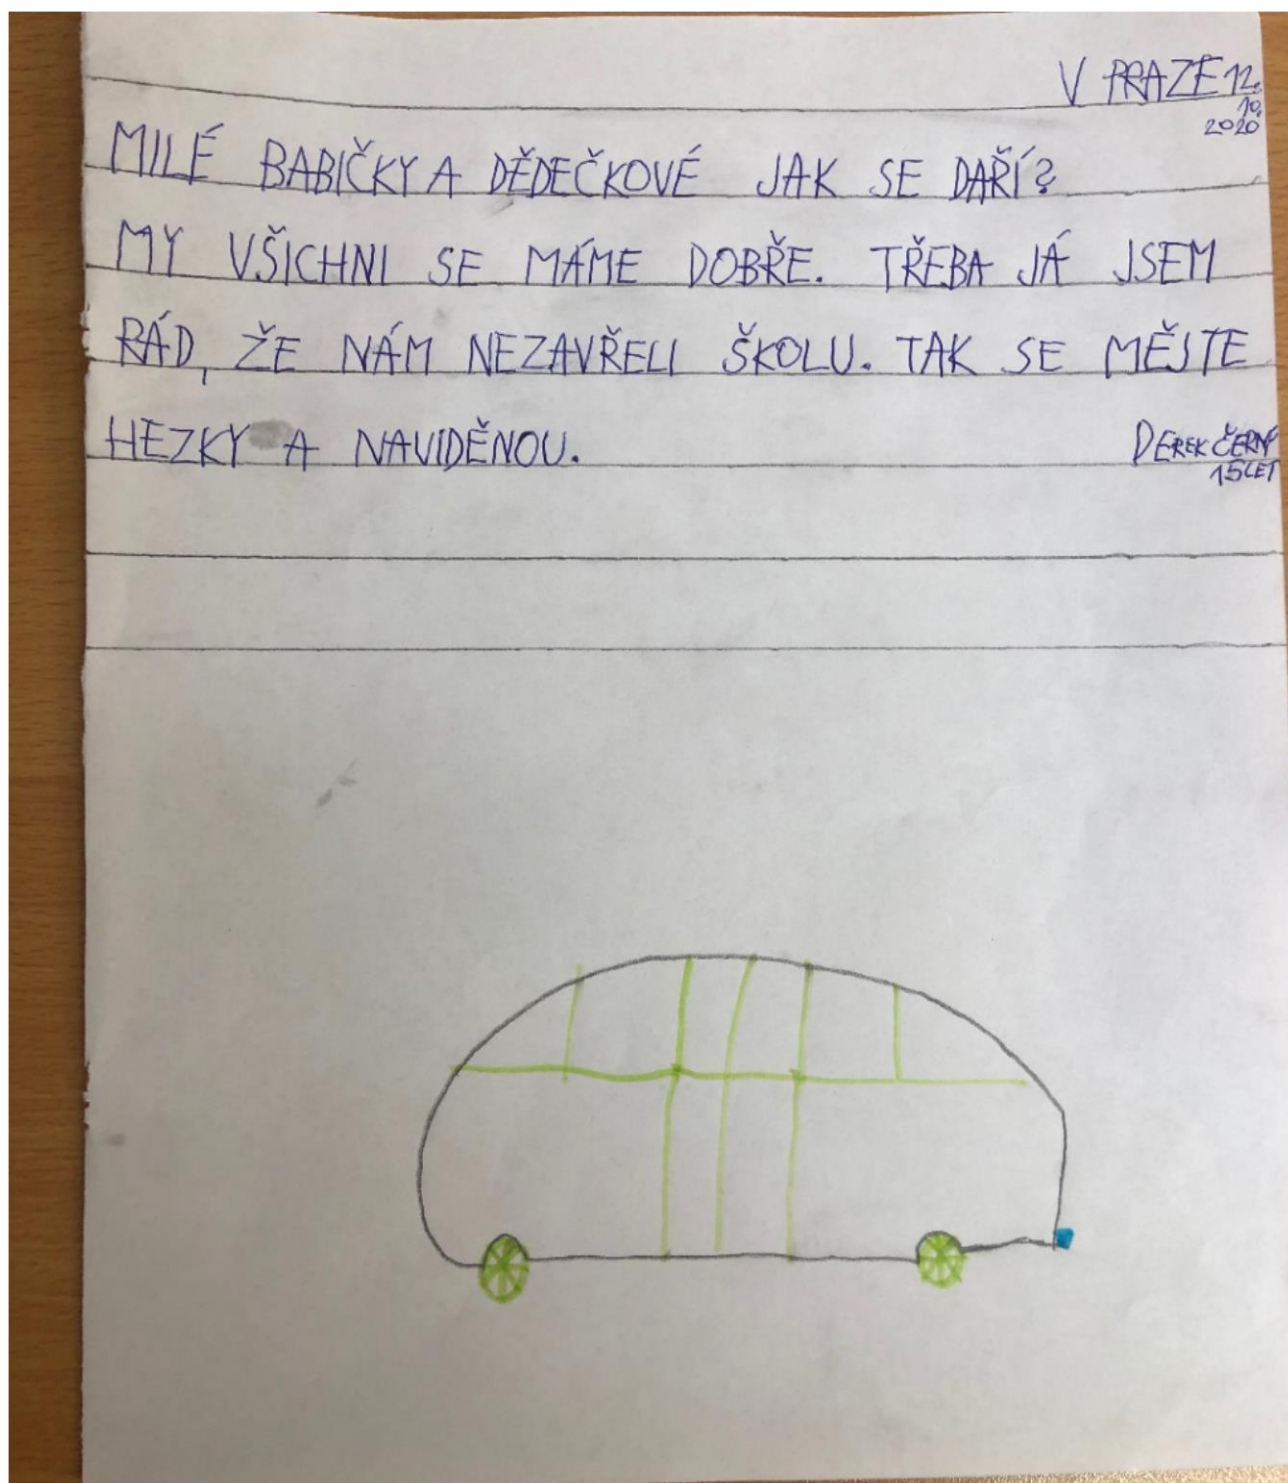 V PRAZE 12.
10.
2020
MILÉ BABIČKY A DĚDEČKOVÉ JAK SE DAŘÍ?
MY VŠICHNI SE MÁME DOBŘE. TŘEBA JÁ JSEM
RÁD, ŽE NÁM NEZAVŘELI ŠKOLU. TAK SE MĚJTE
HEZKY A NAVIDĚNOU.
DEREK ČERNÝ
15 LET